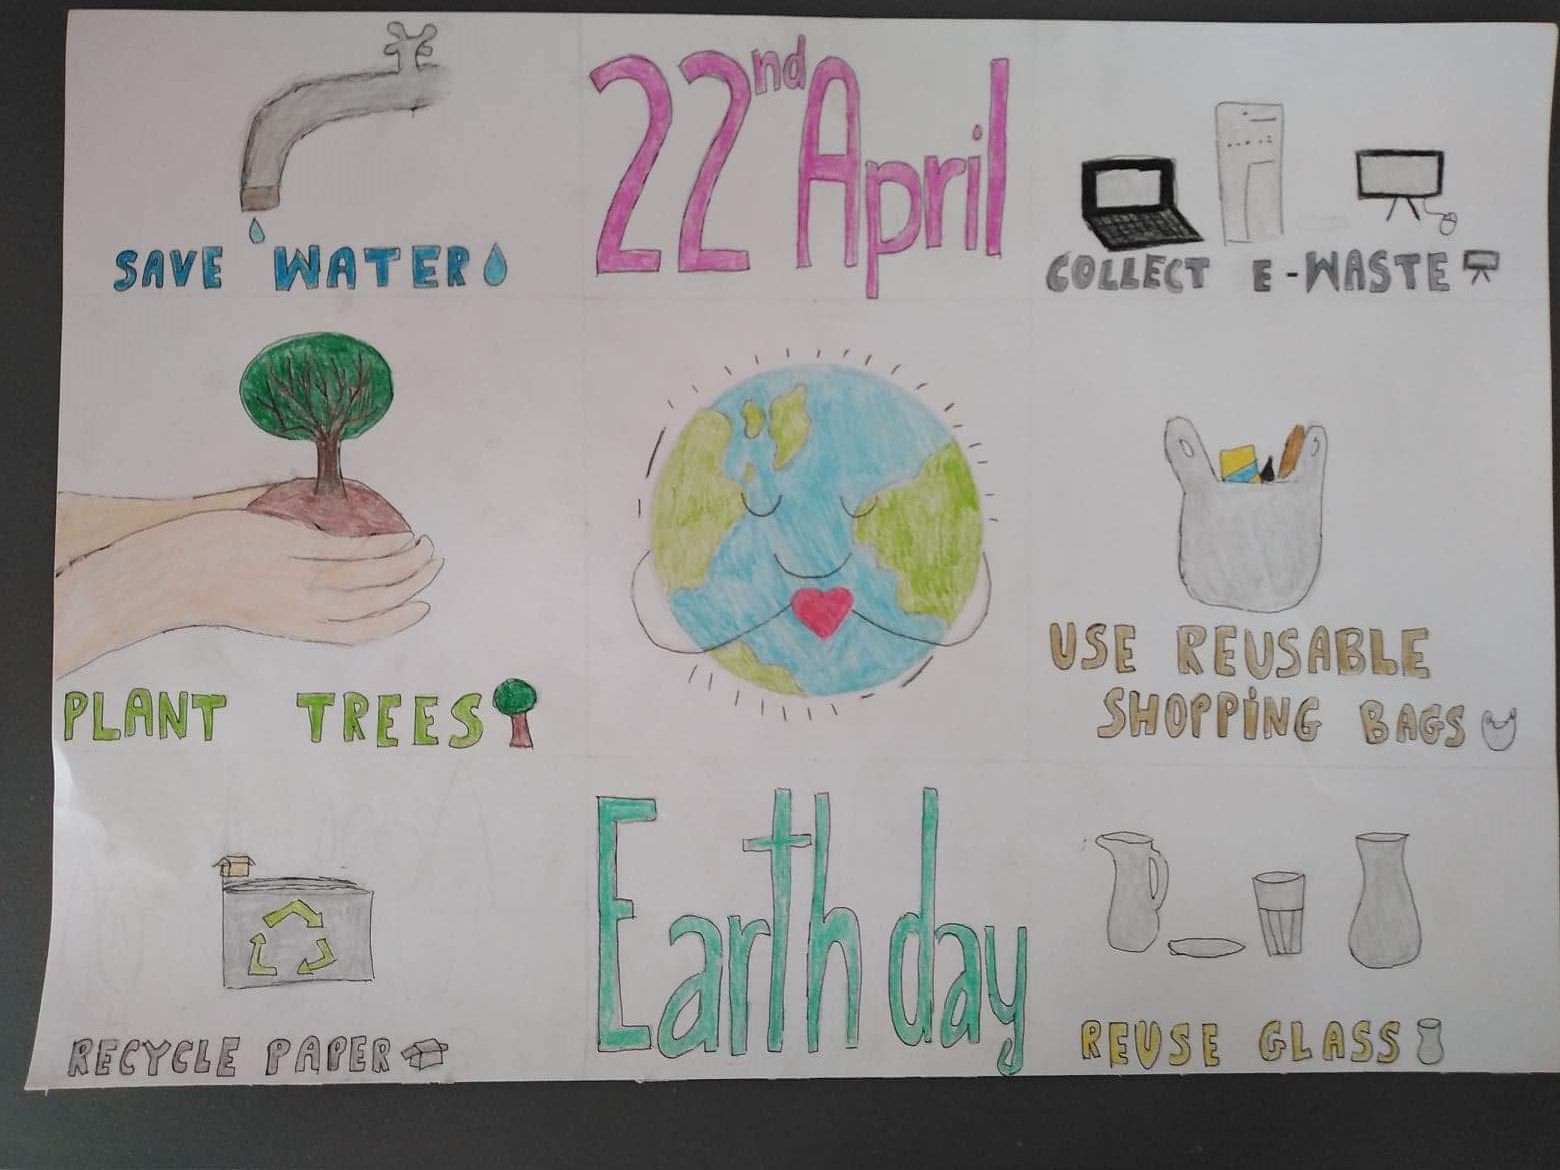 SAVE WATER
22nd April
COLLECT E-WASTE
PLANT TREES
USE REUSABLE
SHOPPING BAGS
RECYCLE PAPER
Earth day
REUSE GLASS